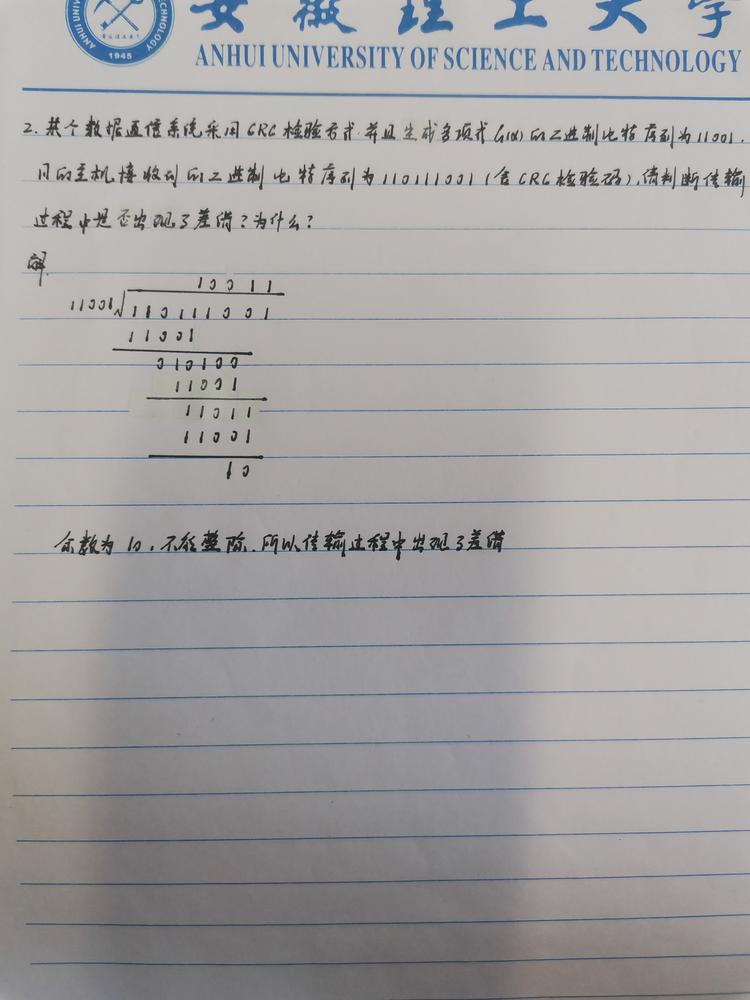 安徽理工大学
ANHUI UNIVERSITY OF SCIENCE AND TECHNOLOGY
1945
2. 某个数据通信系统采用CRC检验方式,并且生成多项式G(x)的二进制比特序列为11001,
目的主机接收到的二进制比特序列为110111001(含CRC检验码),请判断传输
过程中是否出现了差错?为什么?
解.
10011
11001√110111001
11001
010100
11001
11011
11001
10
余数为10,不能整除.所以传输过程中出现了差错